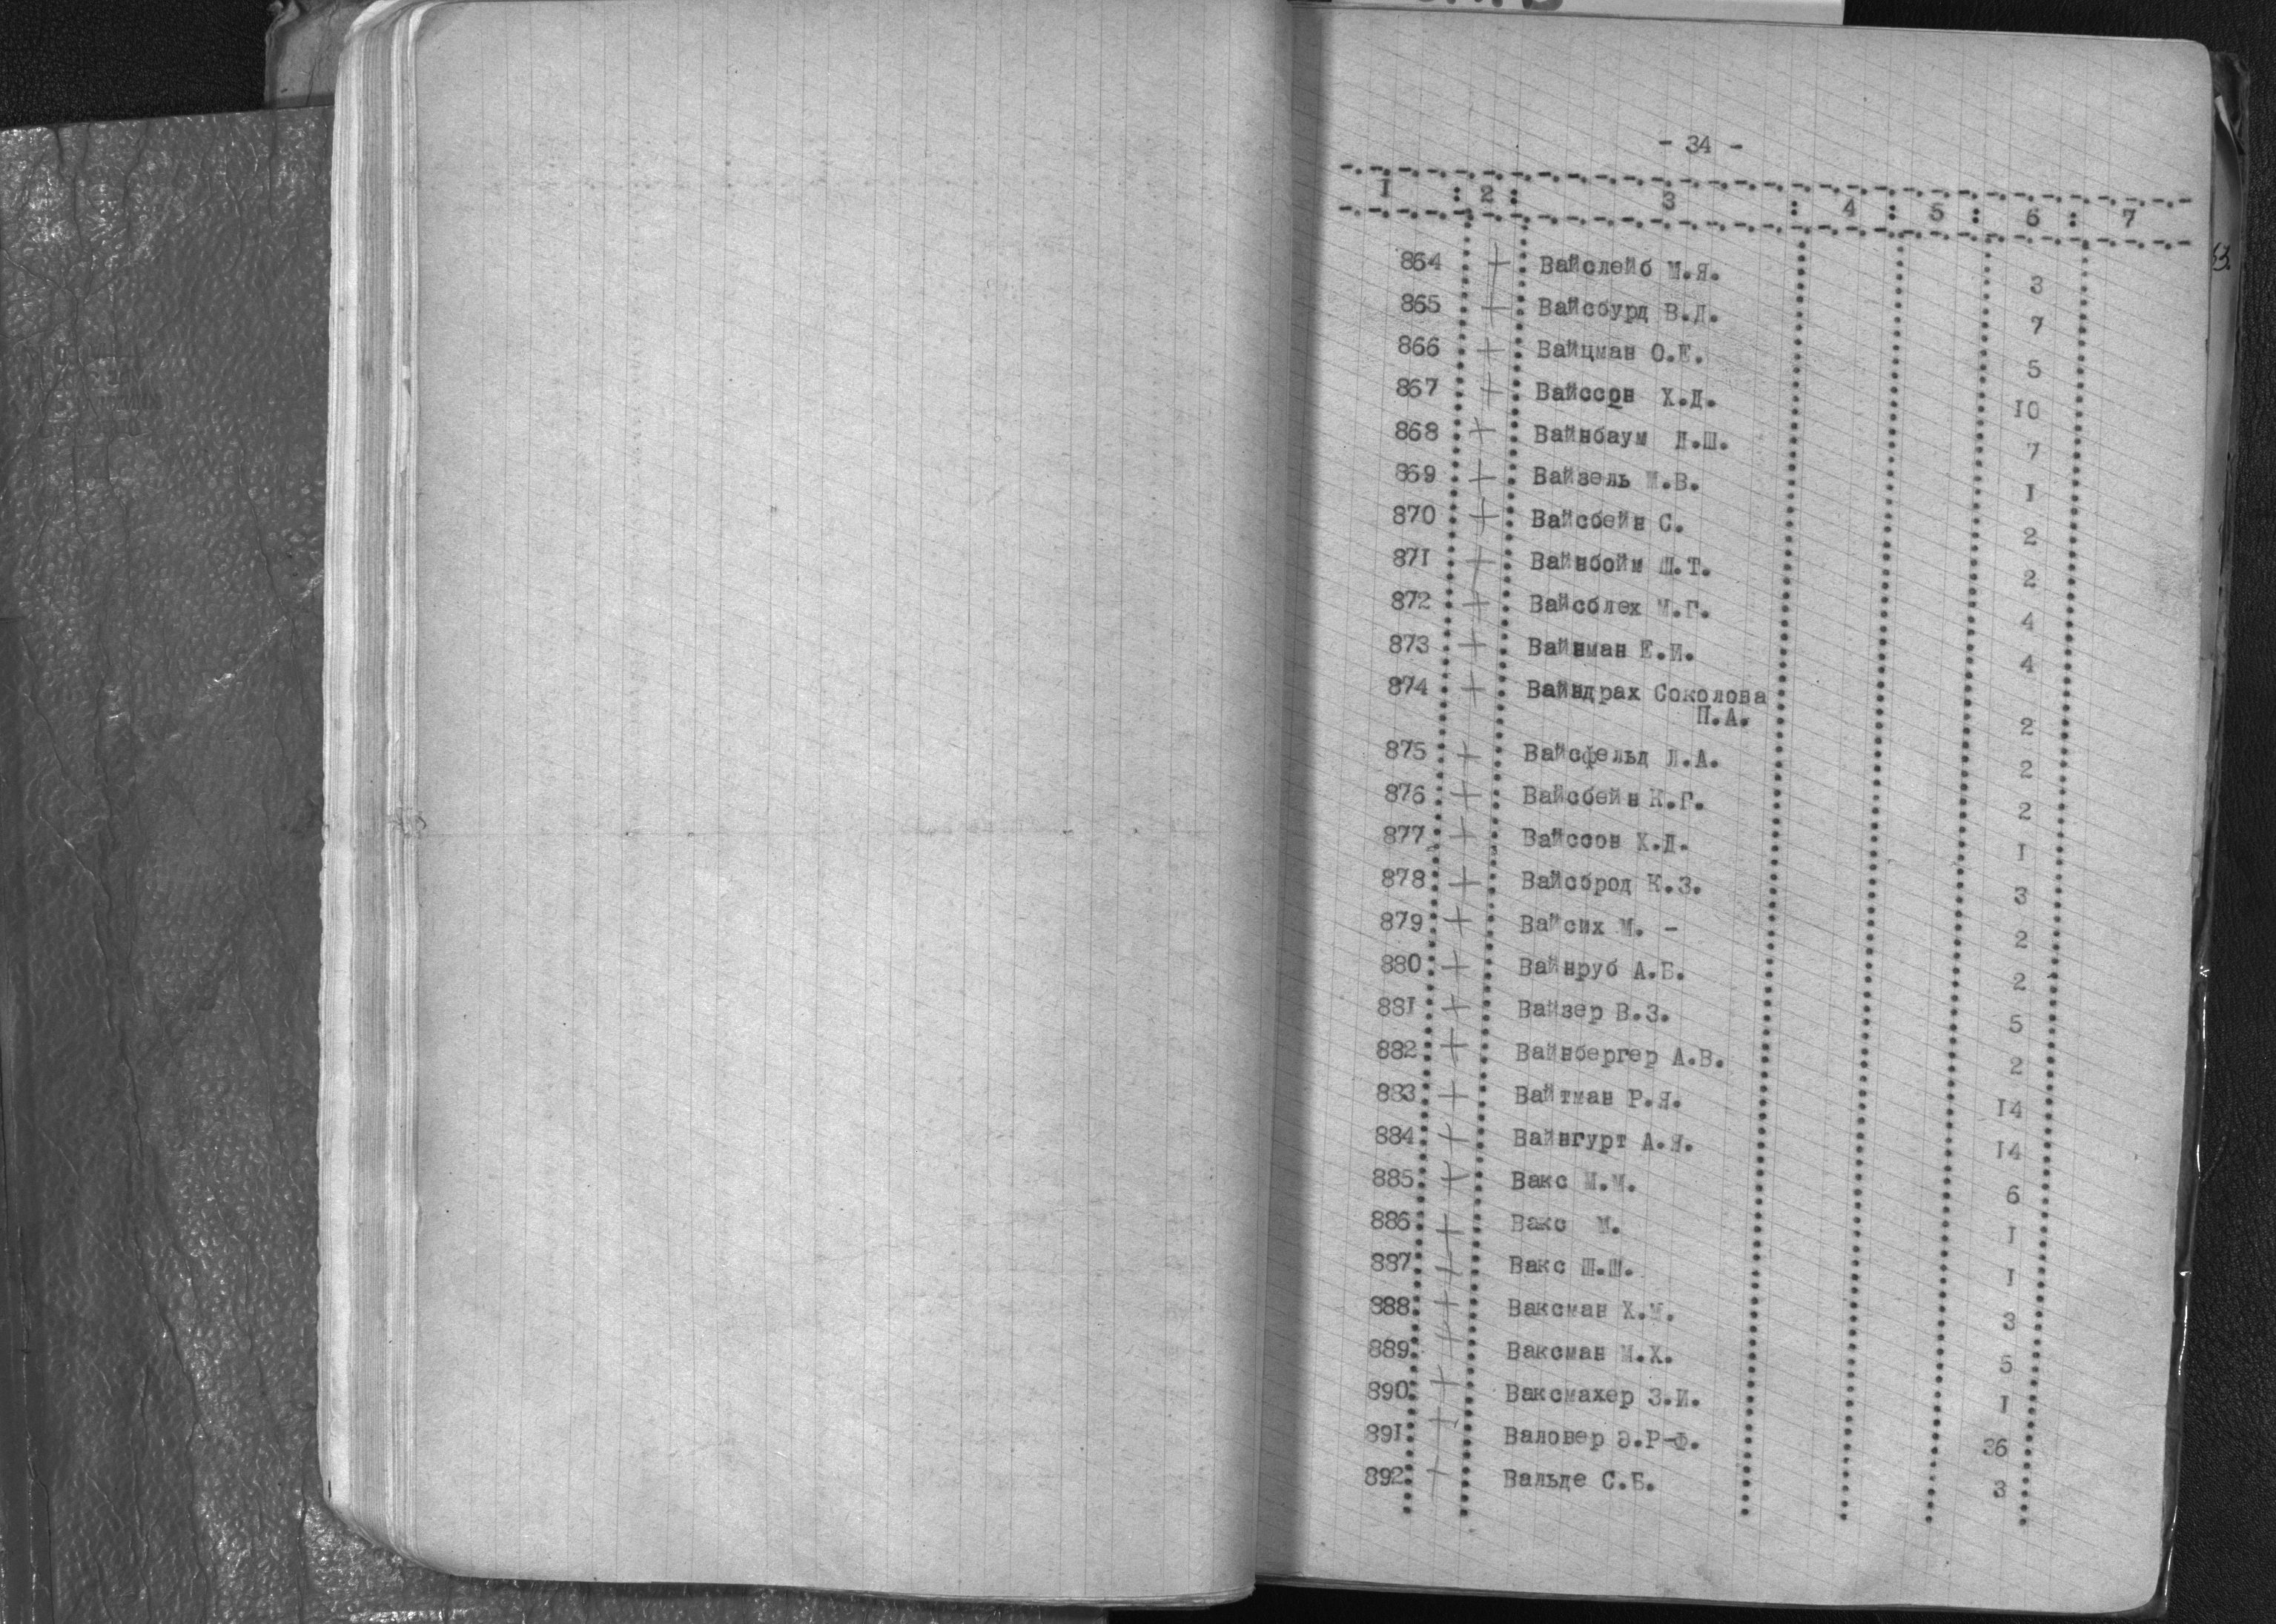 - 34 -
I : 2 : 3 : 4 : 5 : 6 : 7
864 + Вайслейб М.Я. 3
865 + Вайсбурд В.Д. 7
866 + Вайцман О.Е. 5
867 + Вайссон Х.Д. I0
868 + Вайнбаум Л.Ш. 7
869 + Вайзель М.В. I
870 + Вайсбейн С. 2
87I + Вайнбойм Ш.Т. 2
872 + Вайсблех М.Г. 4
873 + Вайнман Е.И. 4
874 + Вайндрах Соколова
П.А. 2
875 + Вайсфельд Л.А. 2
876 + Вайсбейн К.Г. 2
877 + Вайссон Х.Д. I
878 + Вайсброд К.З. 3
879 + Вайсих М. - 2
880 + Вайнруб А.Б. 2
88I + Вайзер В.З. 5
882 + Вайнбергер А.В. 2
883 + Вайтман Р.Я. I4
884 + Вайнгурт А.Я. I4
885 + Вакс М.М. 6
886 + Вакс М. I
887 + Вакс Ш.Ш. I
888 + Ваксман Х.М. 3
889 + Ваксман М.Х. 5
890 + Ваксмахер З.И. I
89I + Валовер Э.Р-Ф. 36
892 + Вальде С.Б. 3